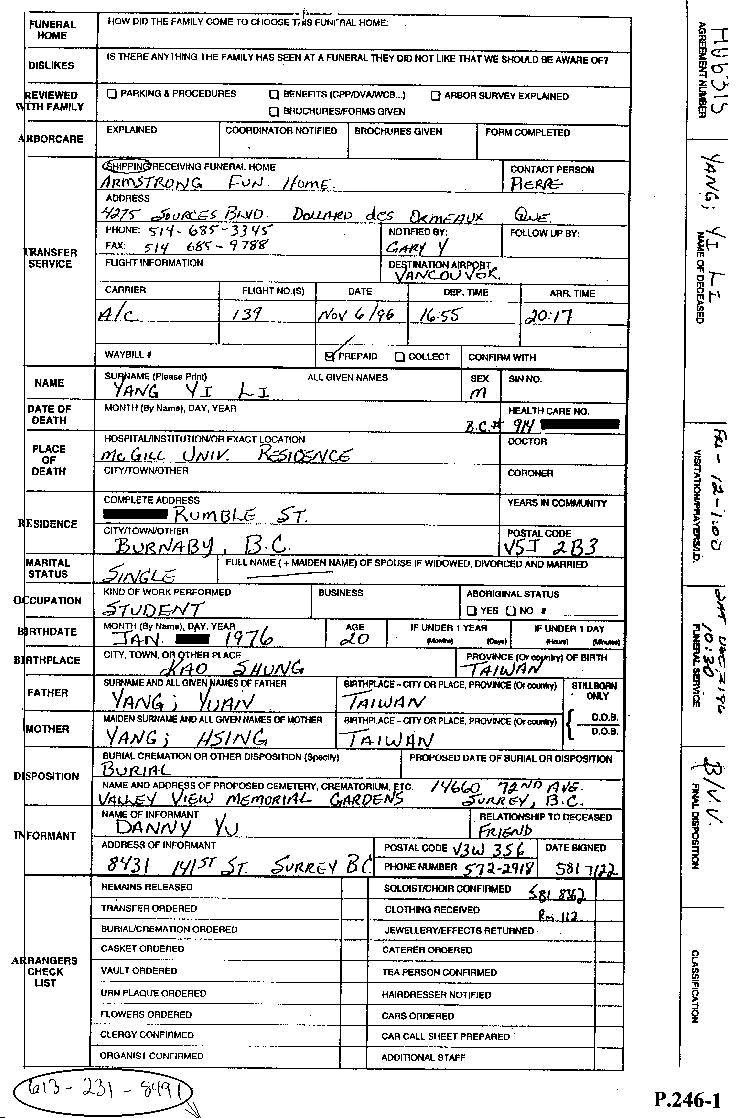 FUNERAL HOME
HOW DID THE FAMILY COME TO CHOOSE THIS FUNERAL HOME:
DISLIKES
IS THERE ANYTHING THE FAMILY HAS SEEN AT A FUNERAL THEY DID NOT LIKE THAT WE SHOULD BE AWARE OF?
REVIEWED WITH FAMILY
PARKING & PROCEDURES BENEFITS (CPP/DVA/WCB...) ARBOR SURVEY EXPLAINED
BROCHURES/FORMS GIVEN
ARBORCARE
EXPLAINED COORDINATOR NOTIFIED BROCHURES GIVEN FORM COMPLETED
TRANSFER SERVICE
SHIPPING/RECEIVING FUNERAL HOME CONTACT PERSON
ARMSTRONG FUN. HOME PIERRE
ADDRESS
4275 SOURCES BLVD. DOLLARD des ORMEAUX QUE.
PHONE: 514-685-3345 NOTIFIED BY: FOLLOW UP BY:
FAX: 514 685-9788 GARY Y
FLIGHT INFORMATION DESTINATION AIRPORT
VANCOUVOR
CARRIER FLIGHT NO.(S) DATE DEP. TIME ARR. TIME
A/C 139 NOV 6/96 16:55 20:17
WAYBILL # PREPAID COLLECT CONFIRM WITH
NAME
SURNAME (Please Print) ALL GIVEN NAMES SEX SIN NO.
YANG YI LI M
DATE OF DEATH
MONTH (By Name), DAY, YEAR HEALTH CARE NO.
B.C.# 914
PLACE OF DEATH
HOSPITAL/INSTITUTION/OR EXACT LOCATION DOCTOR
McGILL UNIV. RESIDENCE
CITY/TOWN/OTHER CORONER
RESIDENCE
COMPLETE ADDRESS YEARS IN COMMUNITY
RUMBLE ST.
CITY/TOWN/OTHER POSTAL CODE
BURNABY, B.C. V5J 2B3
MARITAL STATUS
FULL NAME (+ MAIDEN NAME) OF SPOUSE IF WIDOWED, DIVORCED AND MARRIED
SINGLE
OCCUPATION
KIND OF WORK PERFORMED BUSINESS ABORIGINAL STATUS
STUDENT YES NO #
BIRTHDATE
MONTH (By Name), DAY, YEAR AGE IF UNDER 1 YEAR IF UNDER 1 DAY
JAN. 1976 20 (Months) (Days) (Hours) (Minutes)
BIRTHPLACE
CITY, TOWN, OR OTHER PLACE PROVINCE (Or country) OF BIRTH
KAO SHUNG TAIWAN
FATHER
SURNAME AND ALL GIVEN NAMES OF FATHER BIRTHPLACE - CITY OR PLACE, PROVINCE (Or country) STILLBORN ONLY
YANG; YUAN TAIWAN
MOTHER
MAIDEN SURNAME AND ALL GIVEN NAMES OF MOTHER BIRTHPLACE - CITY OR PLACE, PROVINCE (Or country) D.O.B.
YANG; HSING TAIWAN D.O.B.
DISPOSITION
BURIAL CREMATION OR OTHER DISPOSITION (Specify) PROPOSED DATE OF BURIAL OR DISPOSITION
BURIAL
NAME AND ADDRESS OF PROPOSED CEMETERY, CREMATORIUM, ETC. 14660 72ND AVE.
VALLEY VIEW MEMORIAL GARDENS SURREY, B.C.
INFORMANT
NAME OF INFORMANT RELATIONSHIP TO DECEASED
DANNY YU FRIEND
ADDRESS OF INFORMANT POSTAL CODE V3W 3S6 DATE SIGNED
8431 141ST ST. SURREY BC PHONE NUMBER 572-2918 581 7122
ARRANGERS CHECK LIST
REMAINS RELEASED SOLOIST/CHOIR CONFIRMED 581 8362
TRANSFER ORDERED CLOTHING RECEIVED Rm 112
BURIAL/CREMATION ORDERED JEWELLERY/EFFECTS RETURNED
CASKET ORDERED CATERER ORDERED
VAULT ORDERED TEA PERSON CONFIRMED
URN PLAQUE ORDERED HAIRDRESSER NOTIFIED
FLOWERS ORDERED CARS ORDERED
CLERGY CONFIRMED CAR CALL SHEET PREPARED
ORGANIST CONFIRMED ADDITIONAL STAFF
613-231-8491
P.246-1
HVB315
AGREEMENT NUMBER
YANG; YI LI
NAME OF DECEASED
FRI - 12-1:00
VISITATION/PRAYERS/I.D.
SAT 10:30
FUNERAL SERVICE
B/V.V.
FINAL DISPOSITION
CLASSIFICATION